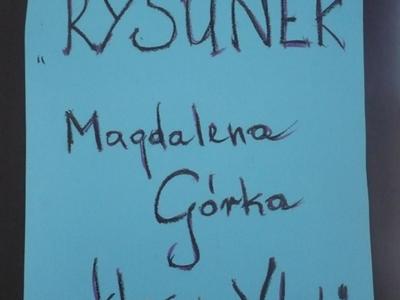 „RYSUNEK
Magdalena
Górka